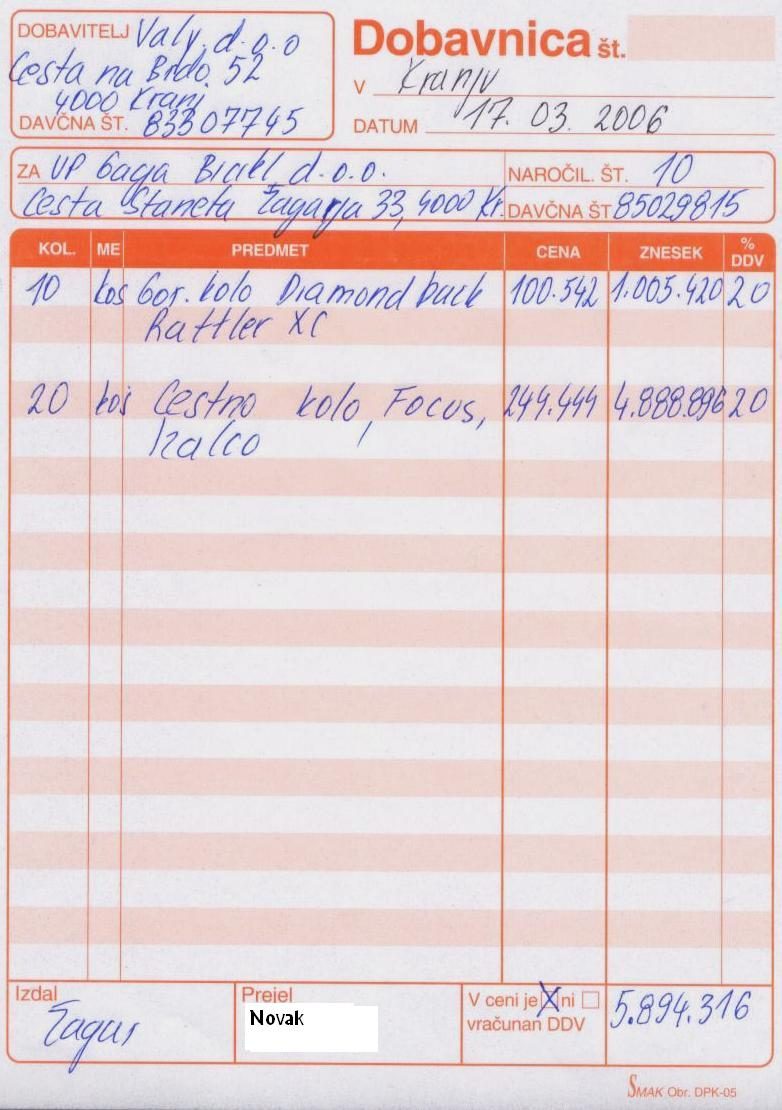 DOBAVITELJ Valy, d.o.o
Cesta na Brdo 52
4000 Kranj
DAVČNA ŠT. 83307745
Dobavnica št.
V Kranju
DATUM 17. 03. 2006
ZA VP Gaga Bicikl d.o.o.
Cesta Staneta Žagarja 33, 4000 Kr.
NAROČIL. ŠT. 10
DAVČNA ŠT 85029815
KOL. ME PREDMET CENA ZNESEK % DDV
10 kos Gor. kolo Diamond back 100.542 1.005.420 20
Rattler XC
20 kos Cestno kolo, Focus, 244.444 4.888.896 20
Izalco
Izdal
Žagar
Prejel
Novak
V ceni je X ni
vračunan DDV
5.894.316
SMAK Obr. DPK-05